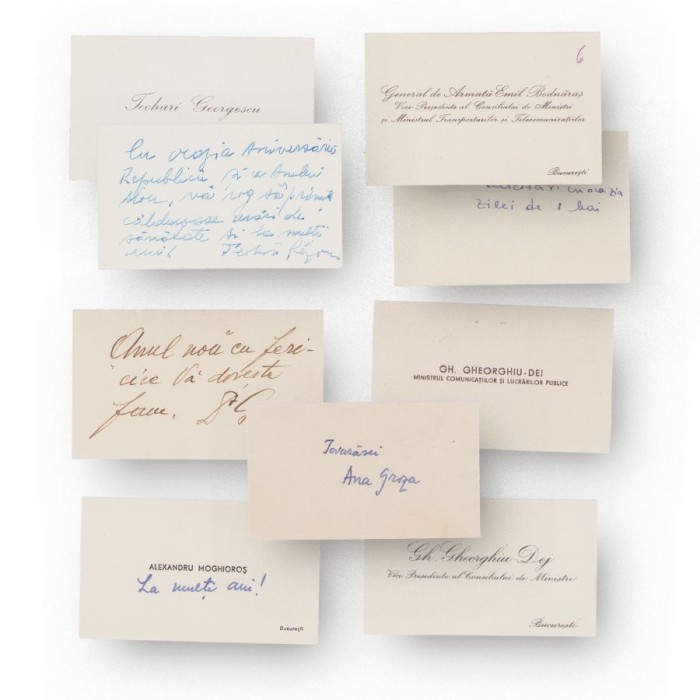 Teohari Georgescu
Cu ocazia Aniversării
Republicii și a Anului
Nou, vă rog să primiți
călduroase urări de
sănătate și la mulți
ani!
6
General de Armată Emil Bodnăraș
Vice-Președinte al Consiliului de Miniștri
și Ministrul Transporturilor și Telecomunicațiilor
București
Zilei de 1 Mai
Anul nou cu feri-
cire Vă dorește
fam.
GH. GHEORGHIU-DEJ
MINISTRUL COMUNICAȚIILOR ȘI LUCRĂRILOR PUBLICE
Tovarășei
Ana Groza
ALEXANDRU MOGHIOROȘ
La mulți ani!
București
Gh. Gheorghiu-Dej
Vice Președinte al Consiliului de Miniștri
București